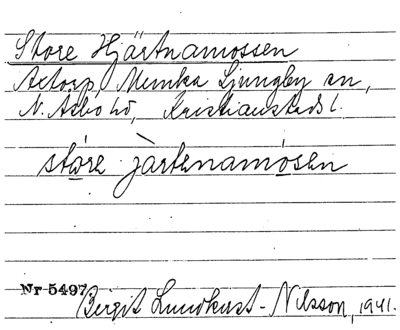 Store Hjärtnamossen
Axtorp, Munka Ljungby sn,
N. Åsbo hd, Kristianstads l.
störe jàrtenamósen
Nr 5497
Birgit Lundkvist-Nilsson, 1941.